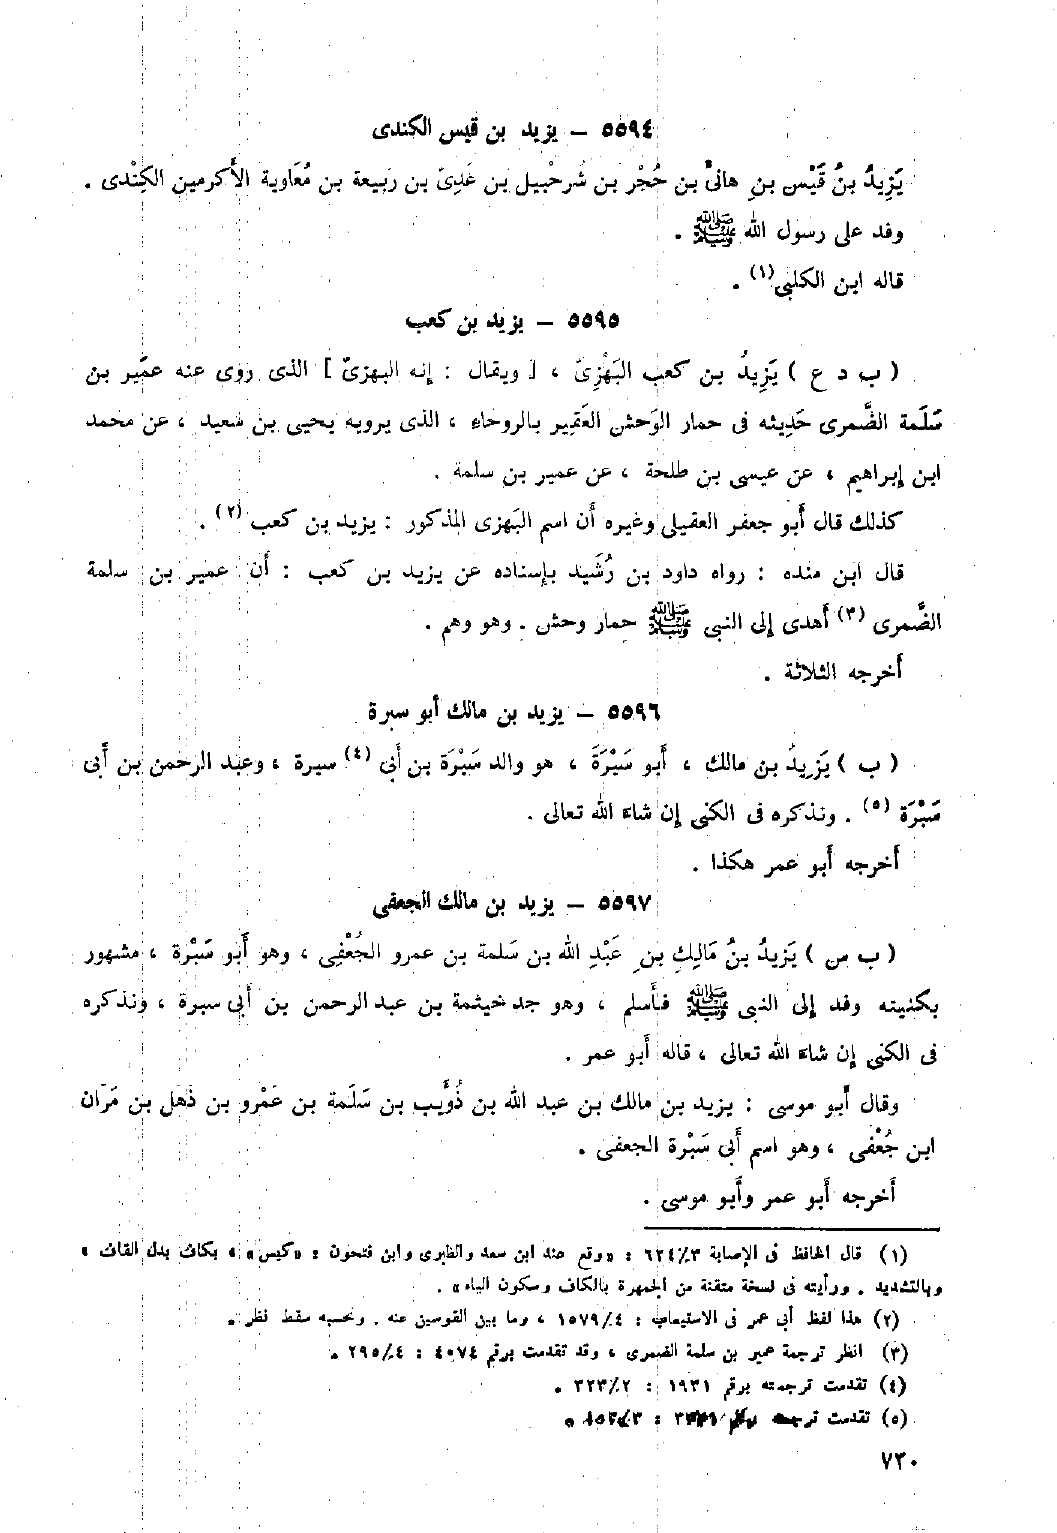 ٥٥٩٤ – يزيد بن قيس الكندى
يَزِيدُ بنُ قَيْس بنِ هانئ بن حُجْر بن شرحْبيل بن عَدِىّ بن ربيعة بن مُعَاوية الأكرمين الكِنْدى .
وفد على رسول الله ﷺ .
قاله ابن الكلبى(١) .
٥٥٩٥ – يزيد بن كعب
( ب د ع ) يَزِيدُ بن كعب البَهْزِىّ ، [ ويقال : إنه البهزىّ ] الذى روى عنه عمَير بن
سَلَمة الضَّمرى حَدِيثه فى حمار الوَحش العَقِير بالروحاء ، الذى يرويه يحيى بن سعيد ، عن محمد
ابن إبراهيم ، عن عيسى بن طلحة ، عن عمير بن سلمة .
كذلك قال أبو جعفر العقيلى وغيره أن اسم البَهزى المذكور : يزيد بن كعب (٢) .
قال ابن منده : رواه داود بن رُشَيد بإسناده عن يزيد بن كعب : أن عمير بن سلمة
الضَّمرى (٣) أهدى إلى النبى ﷺ حمار وحش . وهو وهم .
أخرجه الثلاثة .
٥٥٩٦ – يزيد بن مالك أبو سبرة
( ب ) يَزِيدُ بن مالك ، أبو سَبْرَةَ ، هو والد سَبْرَة بن أبى (٤) سبرة ، وعبد الرحمن بن أبى
سَبْرَة (٥) . ونذكره فى الكنى إن شاء الله تعالى .
أخرجه أبو عمر هكذا .
٥٥٩٧ – يزيد بن مالك الجعفى
( ب س ) يَزِيدُ بنُ مَالِكِ بنِ عَبْدِ الله بن سَلمة بن عمرو الجُعْفِى ، وهو أبو سَبْرة ، مشهور
بكنيته وفد إلى النبى ﷺ فأسلم ، وهو جد خيثمة بن عبد الرحمن بن أبى سبرة ، ونذكره
فى الكنى إن شاء الله تعالى ، قاله أبو عمر .
وقال أبو موسى : يزيد بن مالك بن عبد الله بن ذُؤَيب بن سَلَمة بن عَمْرو بن ذهل بن مَرّان
ابن جُعْفى ، وهو اسم أبى سَبْرة الجعفى .
أخرجه أبو عمر وأبو موسى .
(١) قال الحافظ فى الإصابة ٦٢٤/٣ : «وقع عند ابن سعد والطبرى وابن فتحون : «كيس» ، بكاف بدل القاف ،
وبالتشديد . ورأيته فى نسخة متقنة من الجمهرة بالكاف وسكون الياء» .
(٢) هذا لفظ أبى عمر فى الاستيعاب : ١٥٧٩/٤ ، وما بين القوسين عنه . ونحسبه سقط نظر .
(٣) انظر ترجمة عمير بن سلمة الضمرى ، وقد تقدمت برقم ٤٠٧٤ : ٢٩٥/٤ .
(٤) تقدمت ترجمته برقم ١٩٣١ : ٣٢٣/٢ .
(٥) تقدمت ترجمته برقم
٧٣٠